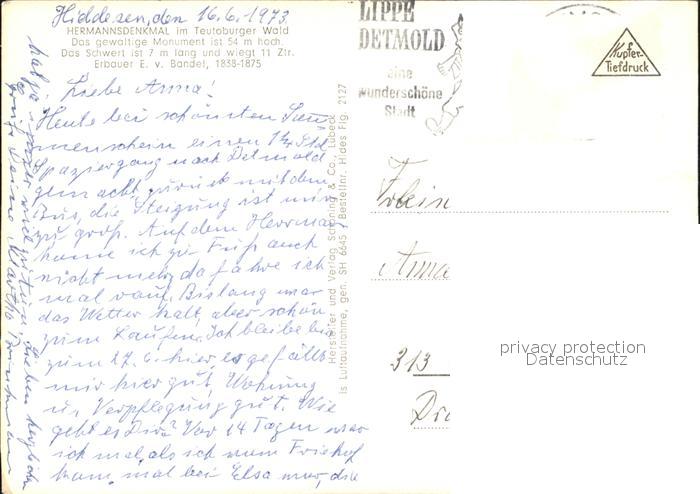 Hiddesen, den 16.6.1973
HERMANNSDENKMAL im Teutoburger Wald
Das gewaltige Monument ist 54 m hoch.
Das Schwert ist 7 m lang und wiegt 11 Ztr.
Erbauer E. v. Bandel, 1838-1875
Liebe Anna!
Heute bei schönsten Son
nenschein einen 1 1/4 Std
Spaziergang nach Detmold
gemacht, zurück mit dem
Bus, die Steigung ist mir
zu groß. Auf dem Herrman
komme ich zu Fuß auch
nicht mehr, da fahre ich
mal rauf. Bislang war
das Wetter kalt, aber schön
zum Laufen. Ich bleibe bis
zum 27.6. hier, es gefällt
mir hier gut, Wohnung
u. Verpflegung gut. Wie
geht es Dir? Vor 14 Tagen war
ich mal, als ich vom Friehof
kam mal bei Elsa war, die
hat ja viel
Grüße Deine Martha
lieben herzlichen
Hersteller und Verlag Schöning & Co., Lübeck
ls Luftaufnahme, gen. SH 6645 / Bestellnr. Hides Flg 2127
LIPPE
DETMOLD
eine
wunderschöne
Stadt
Kupfer-
Tiefdruck
Frlein
Anna
313
privacy protection
Datenschutz